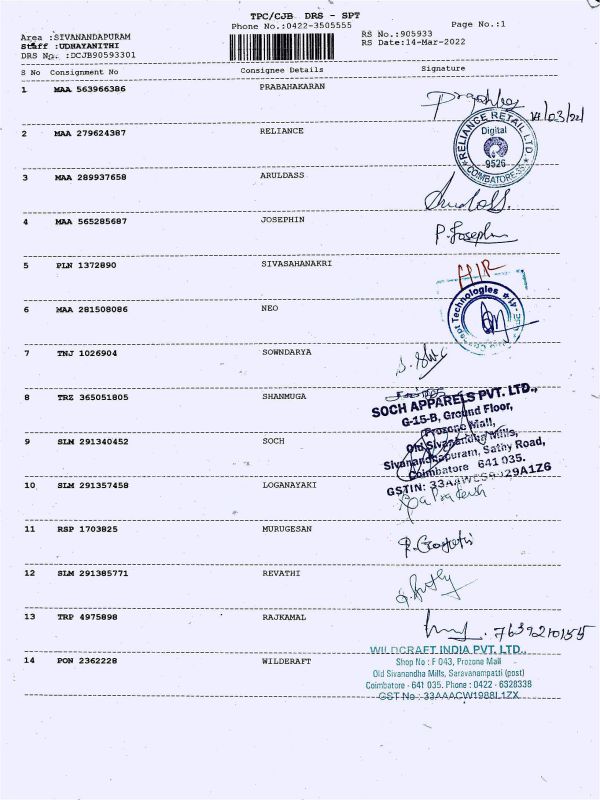 TPC/CJB DRS - SPT
Phone No.:0422-3505555
Page No.:1
Area :SIVANANDAPURAM
Staff :UDHAYANITHI
DRS No. :DCJB90593301
RS No.:905933
RS Date:14-Mar-2022
S No Consignment No Consignee Details Signature
1 MAA 563966386 PRABAHAKARAN
2 MAA 279624387 RELIANCE
RELIANCE RETAIL LTD
Digital
9526
COIMBATORE-35
3 MAA 289937658 ARULDASS
4 MAA 565285687 JOSEPHIN
P. Josephin
5 PLN 1372890 SIVASAHANAKRI
6 MAA 281508086 NEO
Technologies
7 TNJ 1026904 SOWNDARYA
8 TRZ 365051805 SHANMUGA
SOCH APPARELS PVT. LTD.,
G-15-B, Ground Floor,
Prozone Mall,
Old Sivanandha Mills,
Sivanandhapuram, Sathy Road,
Coimbatore 641 035.
9 SLM 291340452 SOCH
10 SLM 291357458 LOGANAYAKI
11 RSP 1703825 MURUGESAN
12 SLM 291385771 REVATHI
13 TRP 4975898 RAJKAMAL
7639210155
14 PON 2362228 WILDERAFT
WILDCRAFT INDIA PVT. LTD.,
Shop No : F 043, Prozone Mall
Old Sivanandha Mills, Saravanampatti (post)
Coimbatore - 641 035. Phone : 0422 - 6328338
GST No : 33AAACW1988L1ZX